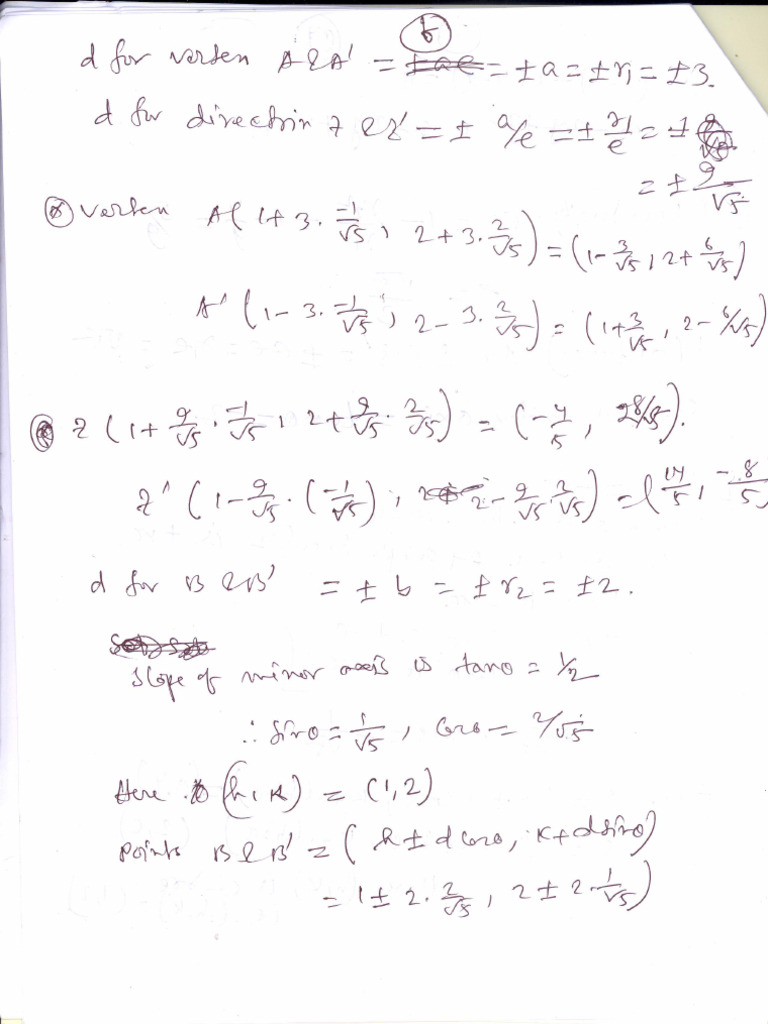 6
d for vertex A & A' = = ±a = ±r₁ = ±3.
d for directrix Z & Z' = ± a/e = ± r₁/e =
= ± 9/√5
vertex A(1+3·-1/√5, 2+3·2/√5) = (1-3/√5, 2+6/√5)
A'(1-3·-1/√5, 2-3·2/√5) = (1+3/√5, 2-6/√5)
Z(1+9/√5·-1/√5, 2+9/√5·2/√5) = (-4/5, 28/5).
Z'(1-9/√5·(-1/√5), 2-9/√5·2/√5) = (14/5, -8/5)
d for B & B' = ±b = ±r₂ = ±2.
Slope of minor axis is tanθ = 1/2
∴ sinθ = 1/√5, cosθ = 2/√5
Here (h, k) = (1, 2)
points B & B' = (h ± d cosθ, k + d sinθ)
= 1 ± 2·2/√5, 2 ± 2·1/√5)